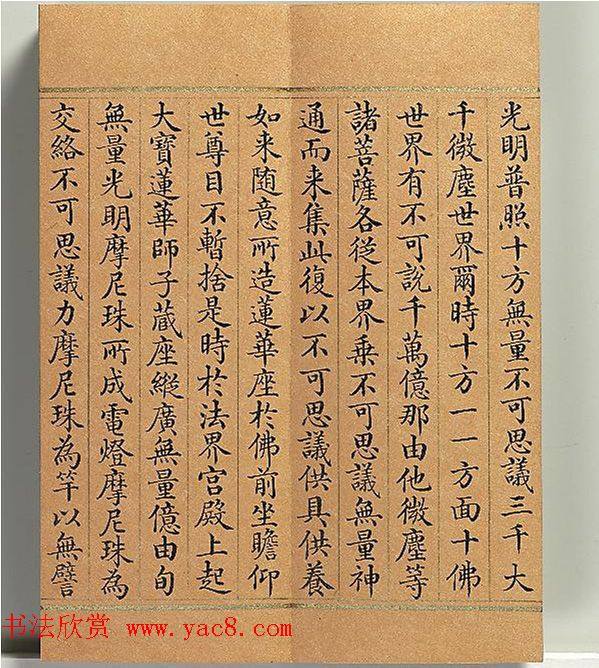 光明普照十方無量不可思議三千大
千微塵世界爾時十方一一方面十佛
世界有不可說千萬億那由他微塵等
諸菩薩各從本界乗不可思議無量神
通而来集此復以不可思議供具供養
如来随意所造蓮華座於佛前坐瞻仰
世尊目不暫捨是時於法界宫殿上起
大寶蓮華師子蔵座縱廣無量億由旬
無量光明摩尼珠所成電燈摩尼珠為
交絡不可思議力摩尼珠為竿以無譬
书法欣赏 www.yac8.com